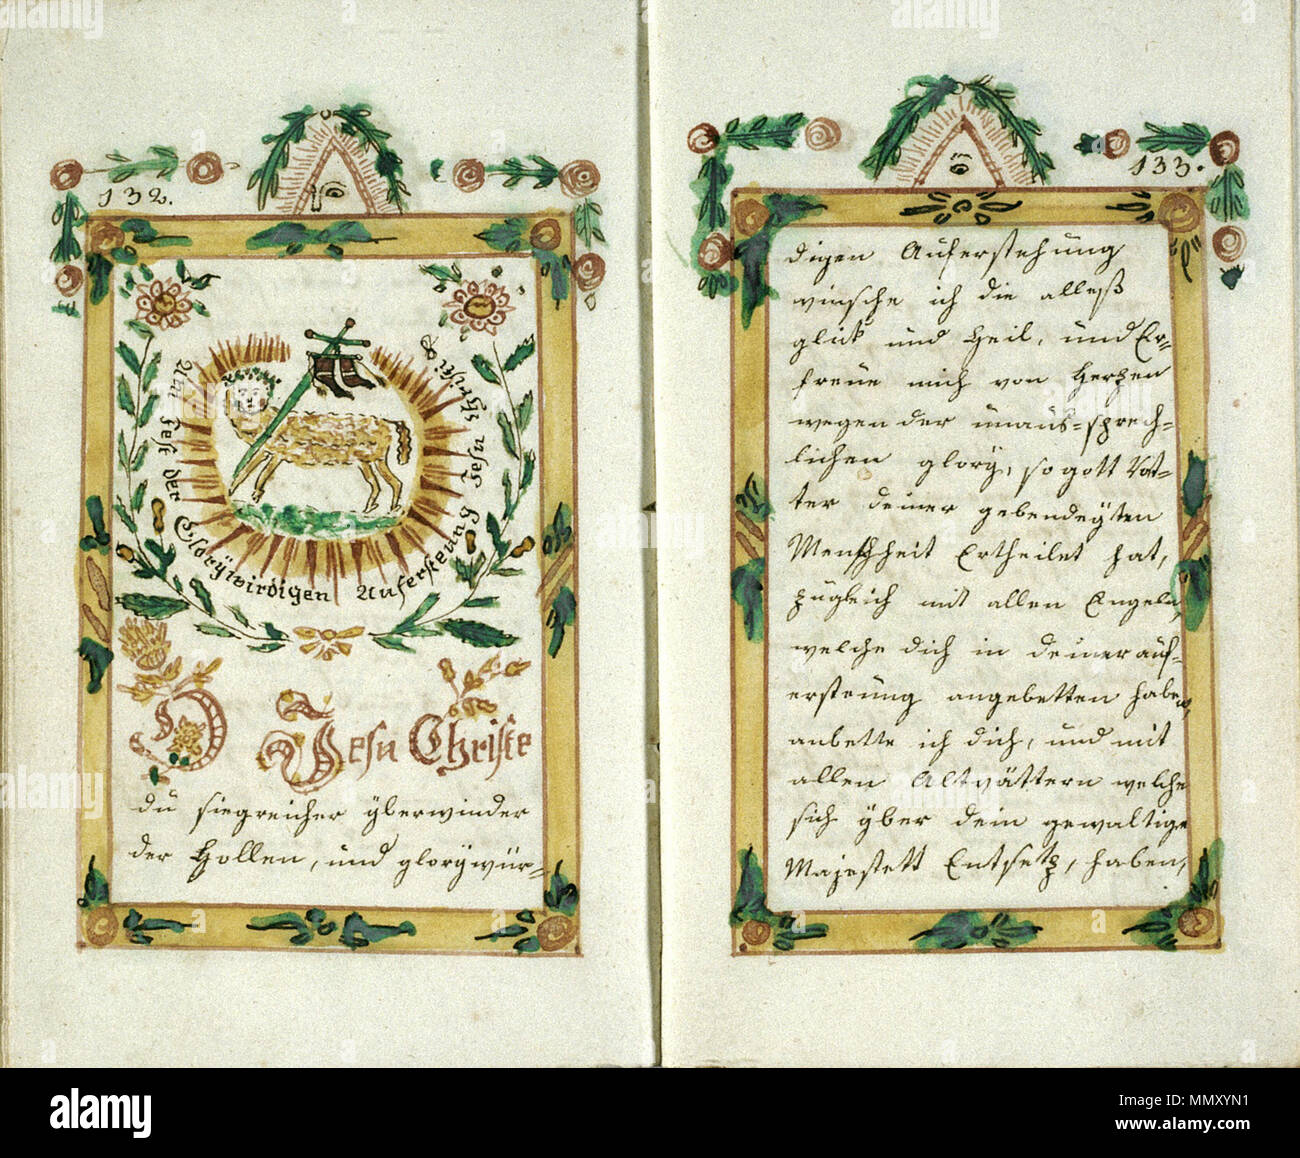 132.
Am Fest der Glorÿwirdigen Aufersteung Jesu Christi &
O Jesu Christe
du siegreicher ÿberwinder
der Hollen, und glorÿwür-
133.
digen Auferstehung
winsche ich die alleß
glick und Heil, und Er-
freue mich von Hertzen
wegen der unaus-sprech-
lichen glorÿ, so gott Vat-
ter deiner gebendeÿten
Menschheit Ertheilet hat,
zugleich mit allen Engeln,
welche dich in deiner auf-
ersteung angebetten haben,
anbette ich dich, und mit
allen Altvättern welche
sich ÿber dein gewaltige
Majestett Entsetz, haben,
alamy
Image ID: MMXYN1
www.alamy.com